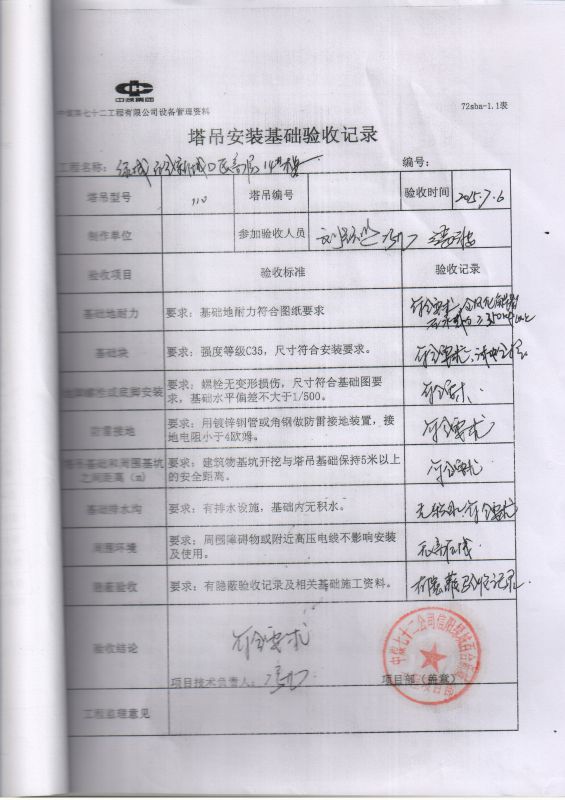 中煤集团
中煤第七十二工程有限公司设备管理资料
72sba-1.1表
塔吊安装基础验收记录
工程名称:
编号:
塔吊型号
110
塔吊编号
验收时间
2015.7.6
制作单位
参加验收人员
验收项目
验收标准
验收记录
基础地耐力
要求:基础地耐力符合图纸要求
符合要求
基础块
要求:强度等级C35,尺寸符合安装要求。
符合要求
地脚螺栓或底脚安装
要求:螺栓无变形损伤,尺寸符合基础图要
求,基础水平偏差不大于1/500。
符合要求
防雷接地
要求:用镀锌钢管或角钢做防雷接地装置,接
地电阻小于4欧姆。
符合要求
塔吊基础和周围基坑
之间距离(m)
要求:建筑物基坑开挖与塔吊基础保持5米以上
的安全距离。
符合要求
基础排水沟
要求:有排水设施,基础内无积水。
无积水,符合要求
周围环境
要求:周围障碍物或附近高压电线不影响安装
及使用。
无高压线
隐蔽验收
要求:有隐蔽验收记录及相关基础施工资料。
有隐蔽验收记录
验收结论
符合要求
项目技术负责人:
项目部(盖章)
工程监理意见